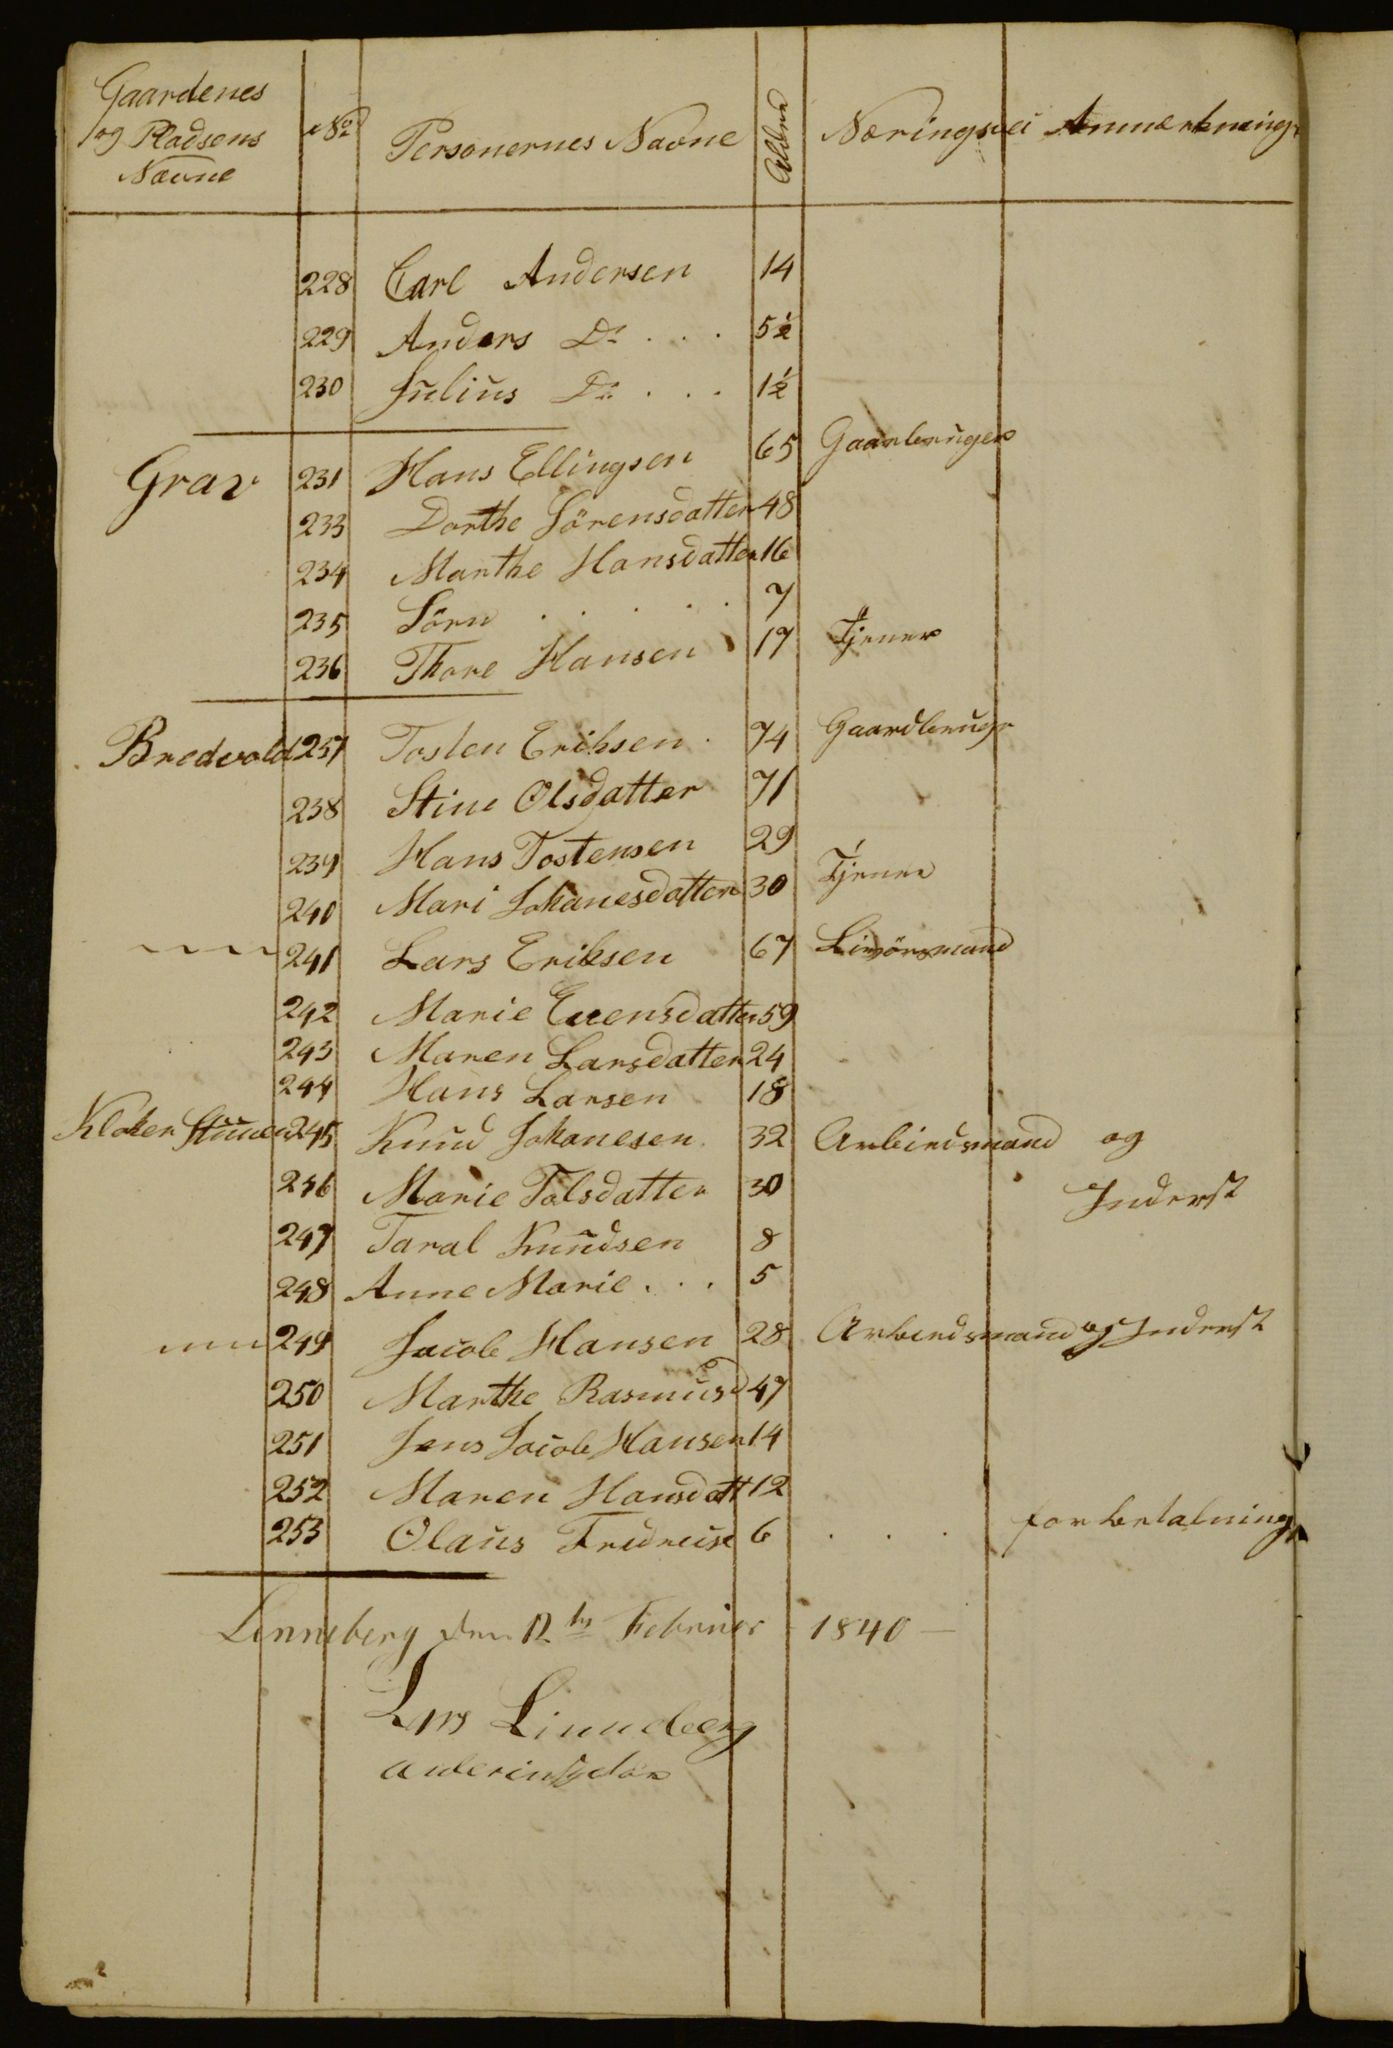 Gaardenes
og Pladsens
Navne
No
Personernes Navne
Alder
Næringsvei
Anmærkning
228 Carl Andersen 14
229 Anders Do . . . 5½
230 Julius Do . . . 1½
Grav 231 Hans Ellingsen 65 Gaarbruger
233 Dorthe Sörensdatter 48
234 Marthe Hansdatter 16
235 Sörn . . . . . 7
236 Thore Hansen 17 Tjener
Bredvold 257 Tosten Eriksen 74 Gaardbrugr
238 Stine Olsdatter 71
239 Hans Tostensen 29
240 Mari Johanesdatter 30 Tjener
241 Lars Eriksen 67
242 Marie Evensdatter 59
243 Maren Larsdatter 24
244 Hans Larsen 18
245 Knud Johanesen 32 Arbeidsmand og
246 Marie Tolsdatter 30 Inderst
247 Taral Knudsen 8
248 Anne Marie . . . 5
249 Jacob Hansen 28 Arbeidsmand og Inderst
250 Marthe Rasmusd 47
251 Jens Jacob Hansen 14
252 Maren Hansdatt 12
253 Olaus 6 . . . for betalning
Linneberg den 12te Februar 1840 —
Lars Linneberg